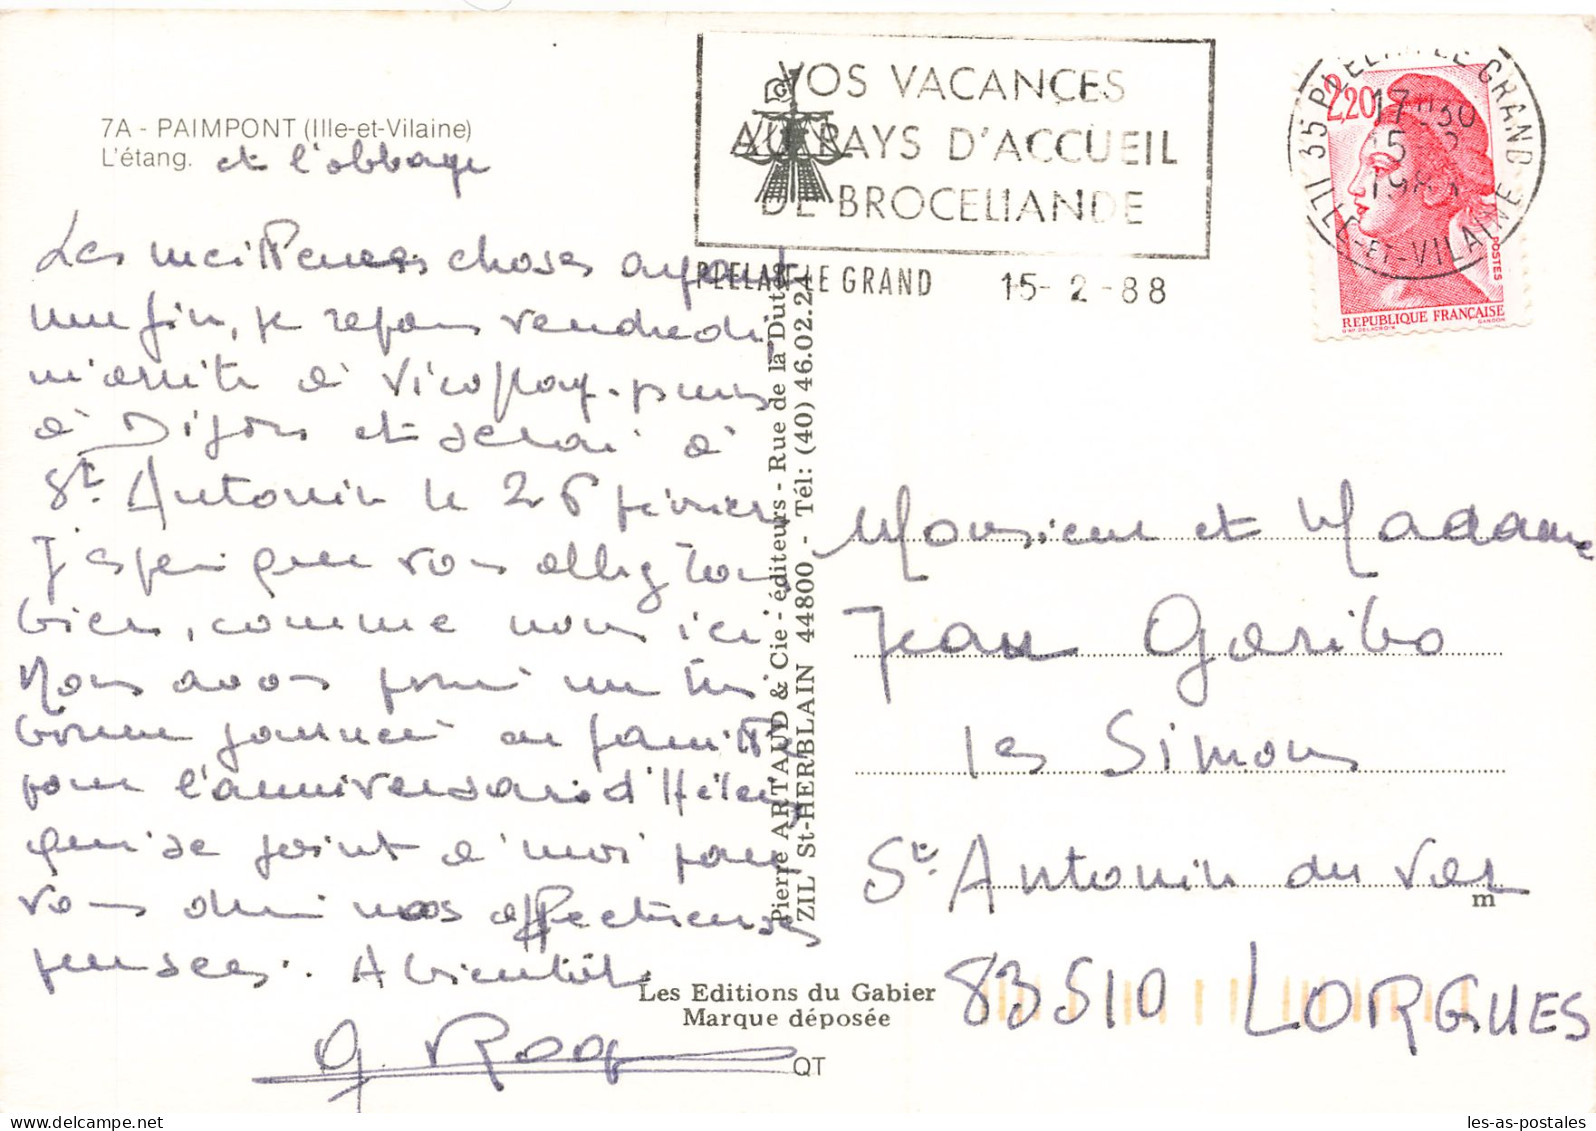 7A - PAIMPONT (Ille-et-Vilaine)
L'étang. et l'abbaye
Les meilleures choses ayant
une fin, je repars vendredi
m'arrête à puis
à Dijon et serai à
St. Antonin le 26 février
J'espère que vous allez tous
bien, comme nous ici
Nous avons passé une très
bonne journée en famille
pour l'anniversaire d'Hélène
qui se joint à moi pour
vous dire nos affectueuses
pensées. A bientôt
G.
VOS VACANCES
AU PAYS D'ACCUEIL
DE BROCELIANDE
PLELAN-LE GRAND 15-2-88
35 PLELAN LE GRAND
17H30
15-2
1988
ILLE-ET-VILAINE
2,20
POSTES
REPUBLIQUE FRANÇAISE
D'AP. DELACROIX GANDON
Pierre ARTAUD & Cie - éditeurs - Rue de la Dutée
ZIL St-HERBLAIN 44800 - Tél: (40) 46.02.24
Monsieur et Madame
Jean Garibo
les Simons
St. Antonin du Var
m
83510 LORGUES
Les Editions du Gabier
Marque déposée
QT
les-as-postales